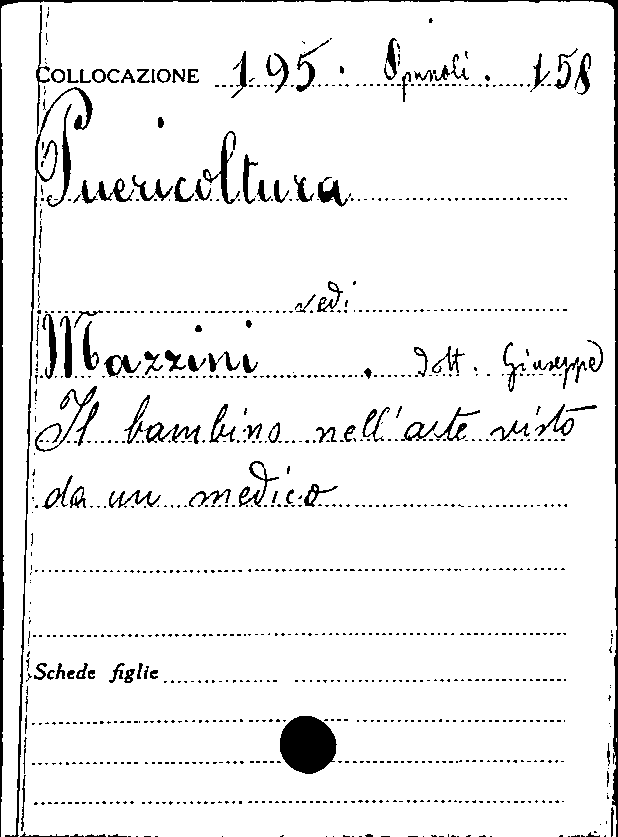 COLLOCAZIONE 195. Opuscoli. 158
Puericoltura
vedi
Mazzini. dott. Giuseppe
Il bambino nell'arte visto
da un medico
Schede figlie